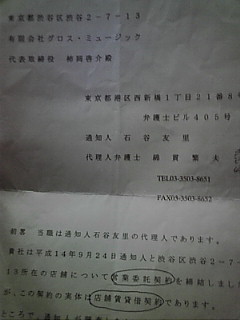 東京都渋谷区渋谷2-7-13
有限会社グロス・ミュージック
代表取締役 柿岡啓介殿
東京都港区西新橋1丁目21番8号
弁護士ビル405号
通知人 石谷友里
代理人弁護士 綿貫繁夫
TEL03-3503-8651
FAX03-3503-8652
前略 当職は通知人石谷友里の代理人であります。
貴社は平成14年9月24日通知人と渋谷区渋谷2-7-
13所在の店舗について営業委託契約を締結しまし
が、この契約の実体は店舗賃貸借契約であります。
ところで、通知人が